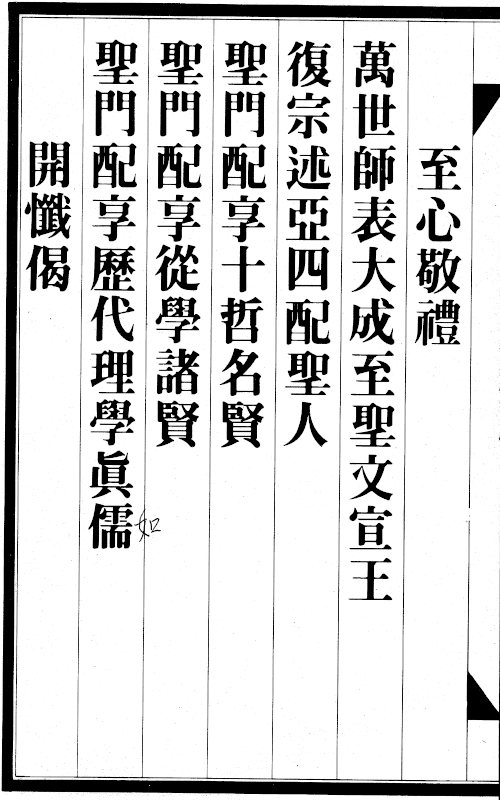 至心敬禮
萬世師表大成至聖文宣王
復宗述亞四配聖人
聖門配享十哲名賢
聖門配享從學諸賢
聖門配享歷代理學眞儒
如
開懺偈